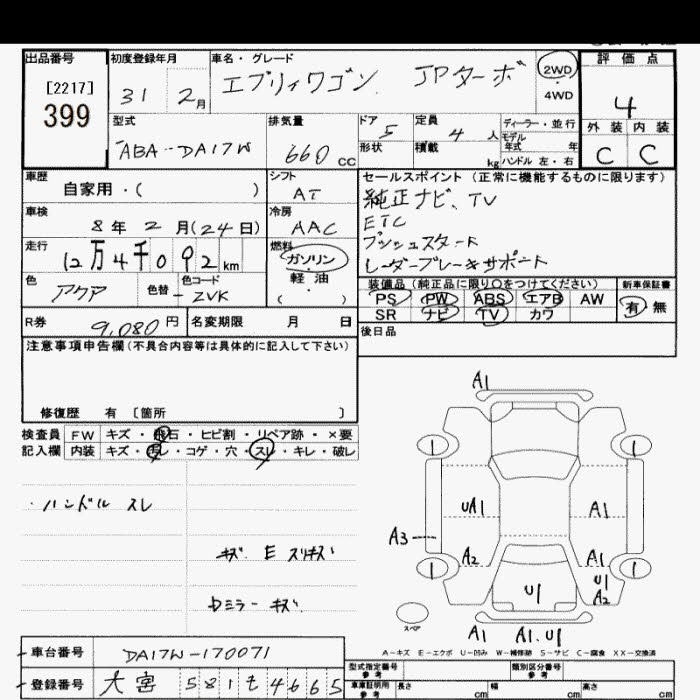 出品番号
[2217]
399
初度登録年月
31 2月
車名・グレード
エブリィワゴン JPターボ
2WD
4WD
評価点
4
外装 内装
C C
型式
ABA-DA17W
排気量
660 CC
ドア 5
形状
定員 4人
積載 kg
ディーラー・並行
モデル年式 年
ハンドル 左・右
車歴
自家用・( )
シフト
AT
車検
8年2月(24日)
冷房
AAC
走行
12万4千092km
燃料
ガソリン
軽油
( )
色
アクア
色替
色コード
ZVK
R券
9,080円
名変期限 月 日
セールスポイント(正常に機能するものに限ります)
純正ナビ、TV
ETC
プッシュスタート
レーダーブレーキサポート
装備品(純正品に限り○をつけてください)
PS PW ABS エアB AW
SR ナビ TV カワ
新車保証書
有 無
後日品
注意事項申告欄(不具合内容等は具体的に記入して下さい)
修復歴 有 〔箇所 〕
検査員
記入欄
FW キズ・飛石・ヒビ割・リペア跡・×要
内装 キズ・汚レ・コゲ・穴・スレ・キレ・破レ
・ハンドル スレ
キズ E スリキズ
Dミラー キズ
A1
1
1
UA1
A1
A3
A2
A1
U1
A2
1
1
U1
スペア
A1
A1.U1
A-キズ E-エクボ U-凹み W-補修跡 S-サビ C-腐食 XX-交換済
車台番号
DA17W-170071
登録番号
大宮 581 そ 4665
型式指定番号
参考
類別区分番号
参考
車庫証明用
参考
長さ cm
幅 cm
高さ cm